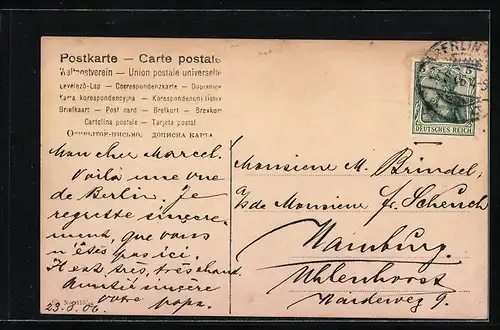 Postkarte — Carte postale
Weltpostverein — Union postale universelle
Levelező-Lap — Correspondenzkarte — Dopisnice
Karta korespondencyjna — Korespondenční lístek
Briefkaart — Post card — Brefkort — Brevkort
Cartolina postale — Tarjeta postal
Открытое письмо. дописна карта
BERLIN
5
DEUTSCHES REICH
Mon cher Marcel.
Voilà une vue
de Berlin. Je
regrette sincère-
ment, que vous
n'êtes pas ici.
Il est très, très chaud
sincère
votre papa.
23.8.06.
Monsieur M. Brindel,
a/s de Monsieur f. Scheuch
Hamburg.
Uhlenhorst
Haideweg 9.